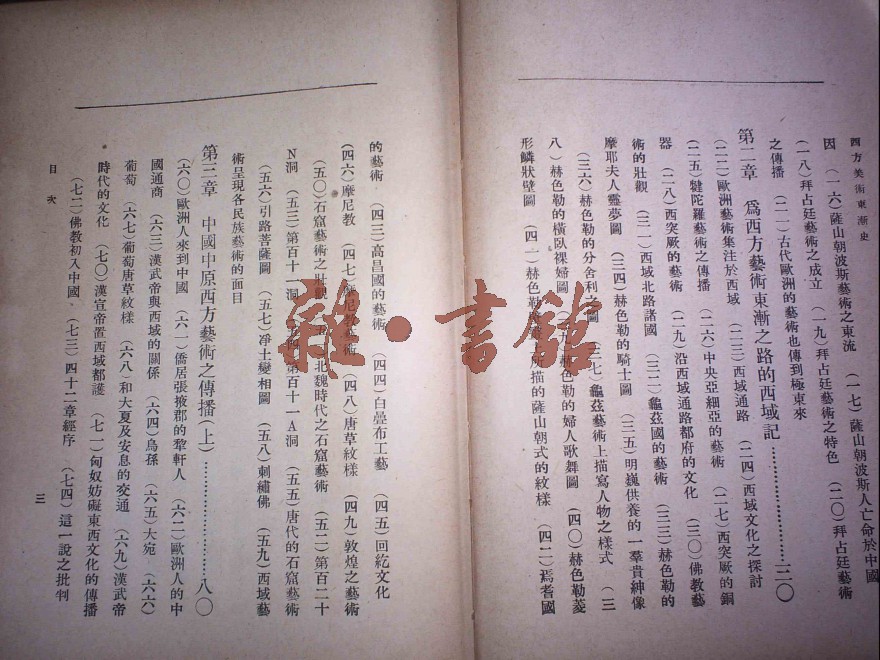 西方美術東漸史
因 (一六)薩山朝波斯藝術之東流 (一七)薩山朝波斯人亡命於中國
(一八)拜占廷藝術之成立 (一九)拜占廷藝術之特色 (二〇)拜占廷藝術
之傳播 (二一)古代歐洲的藝術也傳到極東來
第二章 爲西方藝術東漸之路的西域記…………三〇
(二二)歐洲藝術集注於西域 (二三)西域通路 (二四)西域文化之探討
(二五)犍陀羅藝術之傳播 (二六)中央亞細亞的藝術 (二七)西突厥的銅
器 (二八)西突厥的藝術 (二九)沿西域通路都府的文化 (三〇)佛教藝
術的壯觀 (三一)西域北路諸國 (三二)龜茲國的藝術 (三三)赫色勒的
摩耶夫人靈夢圖 (三四)赫色勒的騎士圖 (三五)明巍供養的一羣貴紳像
(三六)赫色勒的分舍利之圖 (三七)龜茲藝術上描寫人物之樣式 (三
八)赫色勒的橫臥裸婦圖 (三九)赫色勒的婦人歌舞圖 (四〇)赫色勒菱
形鱗狀壁圖 (四一)赫色勒 所描的薩山朝式的紋樣 (四二)焉耆國
的藝術 (四三)高昌國的藝術 (四四)白疊布工藝 (四五)回紇文化
(四六)摩尼教 (四七)摩尼教藝術 (四八)唐草紋樣 (四九)敦煌之藝術
(五〇)石窟藝術之壯觀 北魏時代之石窟藝術 (五二)第百二十
N洞 (五三)第百十一洞 (五四)第百十一A洞 (五五)唐代的石窟藝術
(五六)引路菩薩圖 (五七)淨土變相圖 (五八)刺繡佛 (五九)西域藝
術呈現各民族藝術的面目
第三章 中國中原西方藝術之傳播(上)…………八〇
(六〇)歐洲人來到中國 (六一)僑居張掖郡的犂軒人 (六二)歐洲人的中
國通商 (六三)漢武帝與西域的關係 (六四)烏孫 (六五)大宛 (六六)
葡萄 (六七)葡萄唐草紋樣 (六八)和大夏及安息的交通 (六九)漢武帝
時代的文化 (七〇)漢宣帝置西域都護 (七一)匈奴妨礙東西文化的傳播
(七二)佛教初入中國 (七三)四十二章經序 (七四)這一說之批判
目次 三
雜·書館